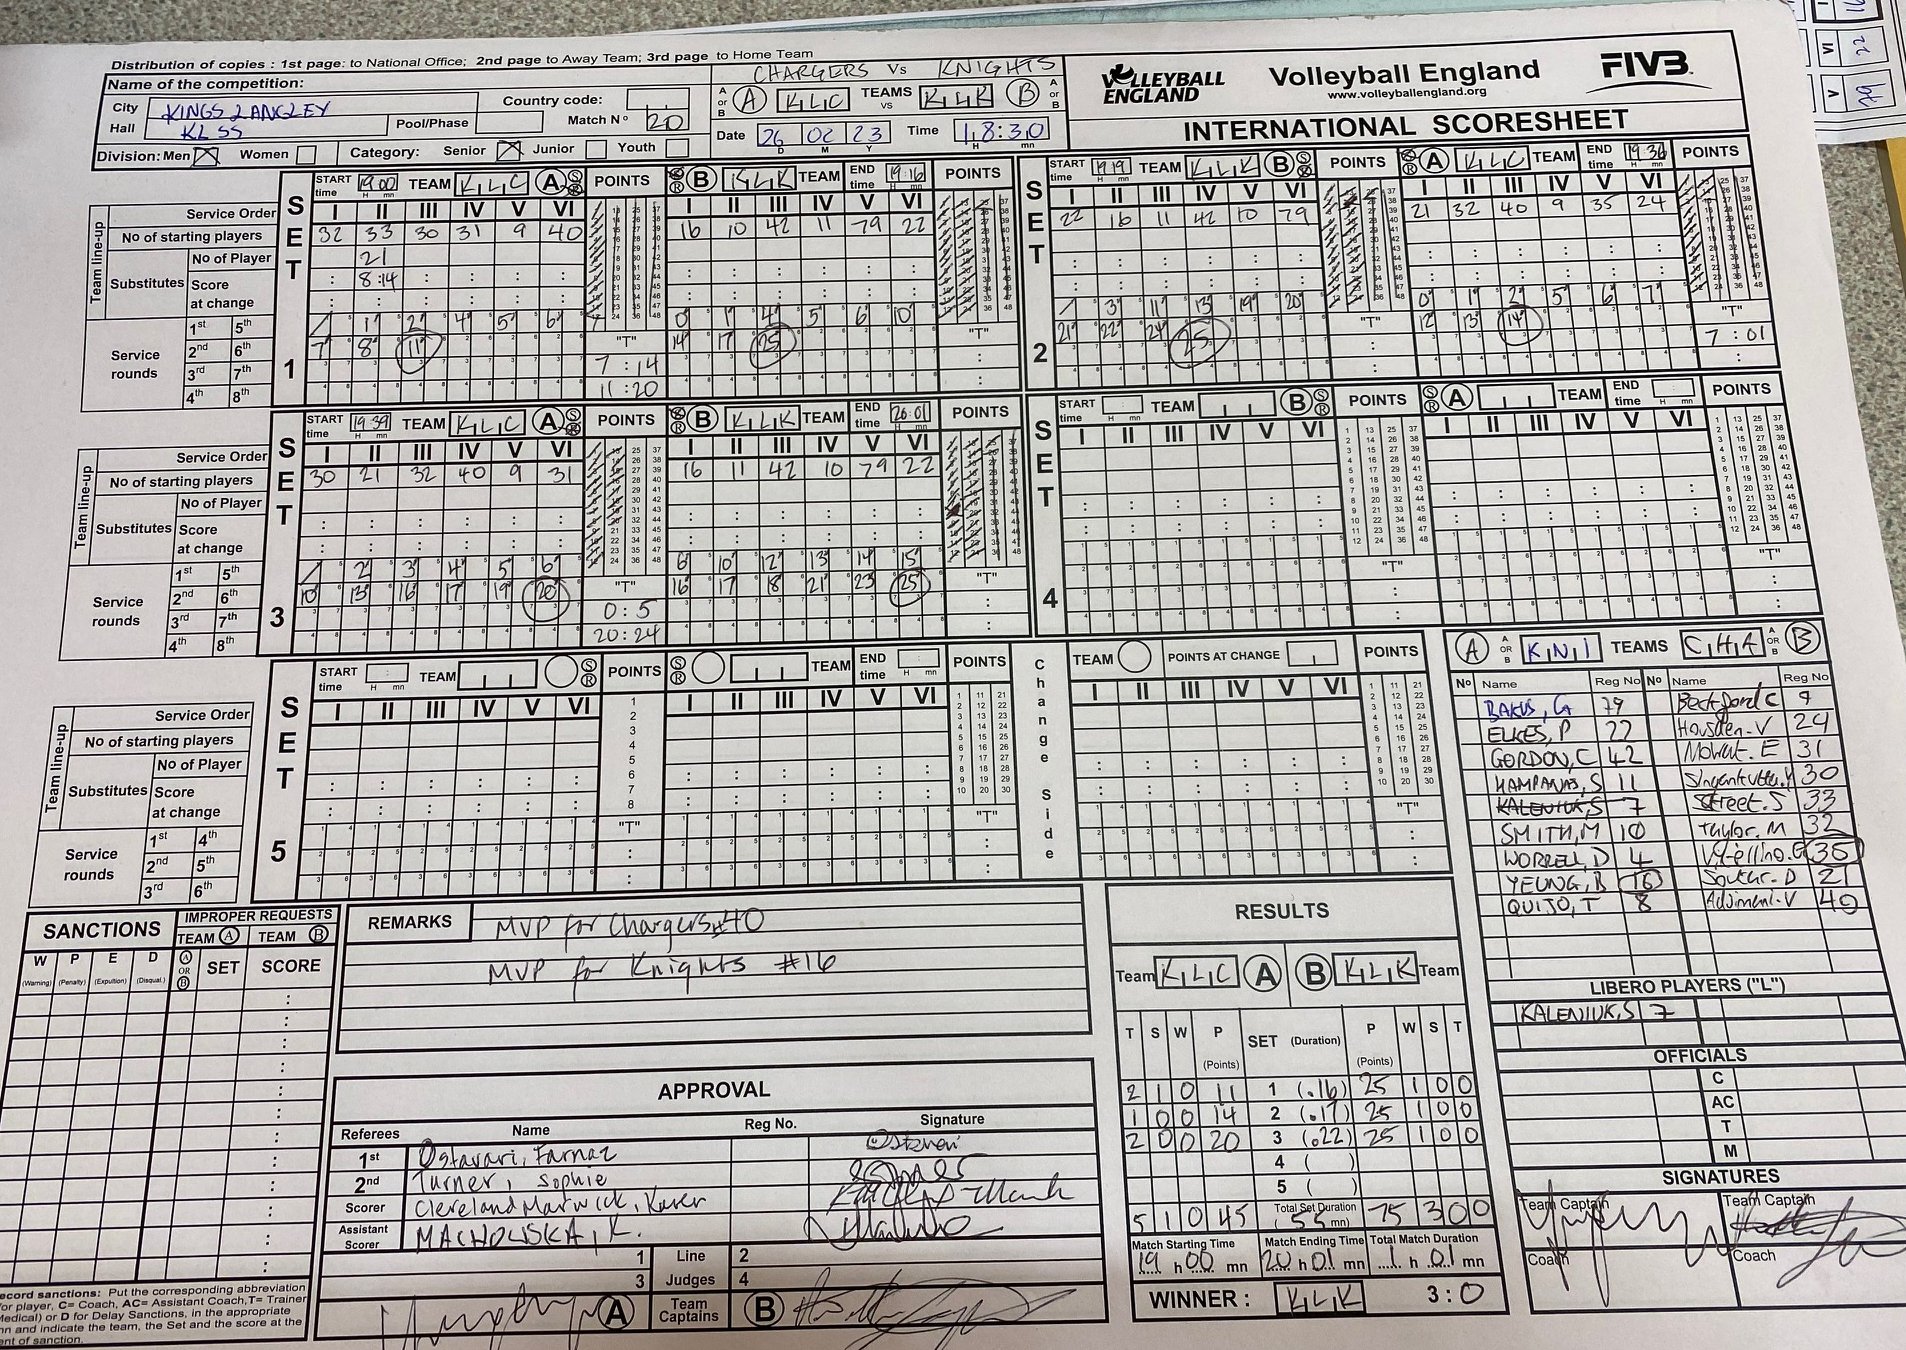 Distribution of copies : 1st page: to National Office; 2nd page to Away Team; 3rd page to Home Team
Name of the competition:
CHARGERS Vs KNIGHTS
City KINGS LANGLEY
Hall KLSS
Country code:
Pool/Phase
Match N° 20
A or B A KLC TEAMS vs KLK B A or B
Date 26 02 23 Time 18:30
D M Y H mn
Division: Men Women Category: Senior Junior Youth
VOLLEYBALL ENGLAND
Volleyball England
www.volleyballengland.org
FIVB
INTERNATIONAL SCORESHEET
SET 1
START time 19:00 TEAM KLC A POINTS
B KLK TEAM END time 19:16 POINTS
Team line-up
Service Order I II III IV V VI I II III IV V VI
No of starting players 32 33 30 31 9 40 16 10 42 11 79 22
Substitutes No of Player 21
Score at change 8:14
Service rounds
1st 5th 1 2 4 5 6 0 1 4 5 6 10
2nd 6th 7 8 11 14 17 25
3rd 7th
4th 8th
"T" 7:14
11:20
SET 2
START time 19:19 TEAM KLK B POINTS
A KLC TEAM END time 19:36 POINTS
I II III IV V VI I II III IV V VI
22 16 11 42 10 79 21 32 40 9 35 24
3 11 13 19 20 0 1 2 5 6 7
21 22 24 25 12 13 14
"T" 7:01
SET 3
START time 19:39 TEAM KLC A POINTS
B KLK TEAM END time 20:01 POINTS
Team line-up
Service Order I II III IV V VI I II III IV V VI
No of starting players 30 21 32 40 9 31 16 11 42 10 79 22
Substitutes No of Player
Score at change
Service rounds
1st 5th 2 3 4 5 6 6 10 12 13 14 15
2nd 6th 10 13 16 17 19 20 16 17 18 21 23 25
3rd 7th
4th 8th
"T" 0:5
20:24
SET 4
START time TEAM B POINTS
A TEAM END time POINTS
I II III IV V VI I II III IV V VI
"T"
SET 5
START time TEAM POINTS
TEAM END time POINTS
Change Side
TEAM POINTS AT CHANGE POINTS
Team line-up
Service Order I II III IV V VI
No of starting players
Substitutes No of Player
Score at change
Service rounds
1st 4th
2nd 5th
3rd 6th
"T"
A A OR B KNI TEAMS CHA A OR B B
N° Name Reg No N° Name Reg No
BAKUS, G 79 Beckford C 9
ELKES, P 22 Housden. V 24
GORDON, C 42 E 31
HAMPANAS, S 11 30
KALENIUK, S 7 Street. S 33
SMITH, M 10 Taylor. M 32
WORRELL, D 4 35
YEUNG, B 16 D 21
QUIJO, T 8 V 40
LIBERO PLAYERS ("L")
KALENIUK, S 7
OFFICIALS
C
AC
T
M
SIGNATURES
Team Captain Team Captain
Coach Coach
SANCTIONS
IMPROPER REQUESTS
TEAM A TEAM B
W P E D A OR B SET SCORE
(Warning) (Penalty) (Expultion) (Disqual.)
ecord sanctions: Put the corresponding abbreviation
or player, C= Coach, AC= Assistant Coach, T= Trainer
Medical) or D for Delay Sanctions, in the appropriate
nn and indicate the team, the Set and the score at the
ent of sanction.
REMARKS
MVP for Chargers #40
MVP for Knights #16
APPROVAL
Referees Name Reg No. Signature
1st Ostavari, Farnaz
2nd Turner, Sophie
Scorer Cleveland Marwick, Karen
Assistant Scorer MACHOWSKA, K.
1 Line 2
3 Judges 4
A Team Captains B
RESULTS
Team KLC A B KLK Team
T S W P (Points) SET (Duration) P (Points) W S T
2 1 0 11 1 (.16) 25 1 0 0
1 0 0 14 2 (.17) 25 1 0 0
2 0 0 20 3 (.22) 25 1 0 0
4 ( )
5 ( )
5 1 0 45 Total Set Duration (55 mn) 75 3 0 0
Match Starting Time Match Ending Time Total Match Duration
19 h 00 mn 20 h 01 mn 1 h 01 mn
WINNER : KLK 3 : 0